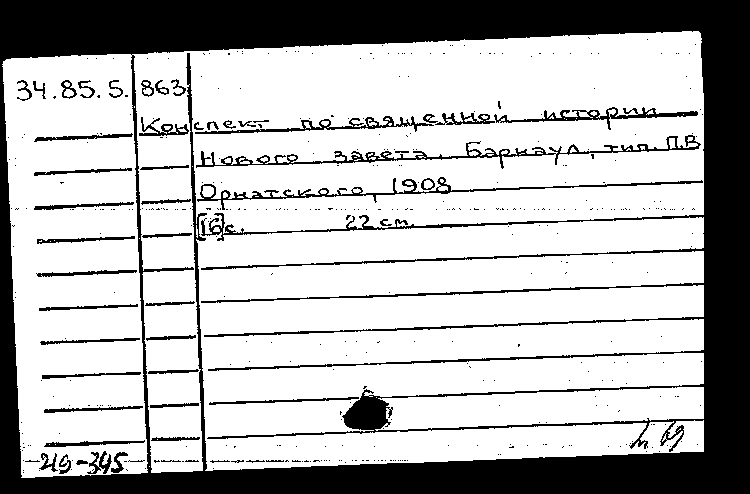 34.85.5.863
Конспект по священной истории
Нового завета. Барнаул, тип. П.В
Орнатского, 1908
[16]с. 22 см.